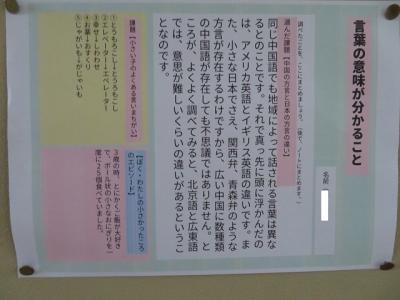 言葉の意味が分かること
調べたことを、ここにまとめましょう。（後で、ノートにまとめます。）
名前
選んだ課題【中国の方言と日本の方言の違い】
同じ中国語でも地域によって話される言葉は異な
るとのことです。それで真っ先に頭に浮かんだの
は、アメリカ英語とイギリス英語の違いです。ま
た、小さな日本でさえ、関西弁、青森弁のような
方言が存在するわけですから、広い中国に数種類
の中国語が存在しても不思議ではありません。と
ころが、よくよく調べてみると、北京語と広東語
では、意思が難しいくらいの違いがあるというこ
となのです。
課題【小さい子のよくある言いまちがい】
①とうもろこし→とうろもこし
②エレベーター→エベレーター
③幸せ→しわわせ
④お薬→おすくり
⑤じゃがいも→がじゃいも
【ぼく・わたしの小さかったころ
のエピソード】
3歳の時、とにかくご飯が大好き
で、ボール状の小さなおにぎりを一
度に25個食べていました。